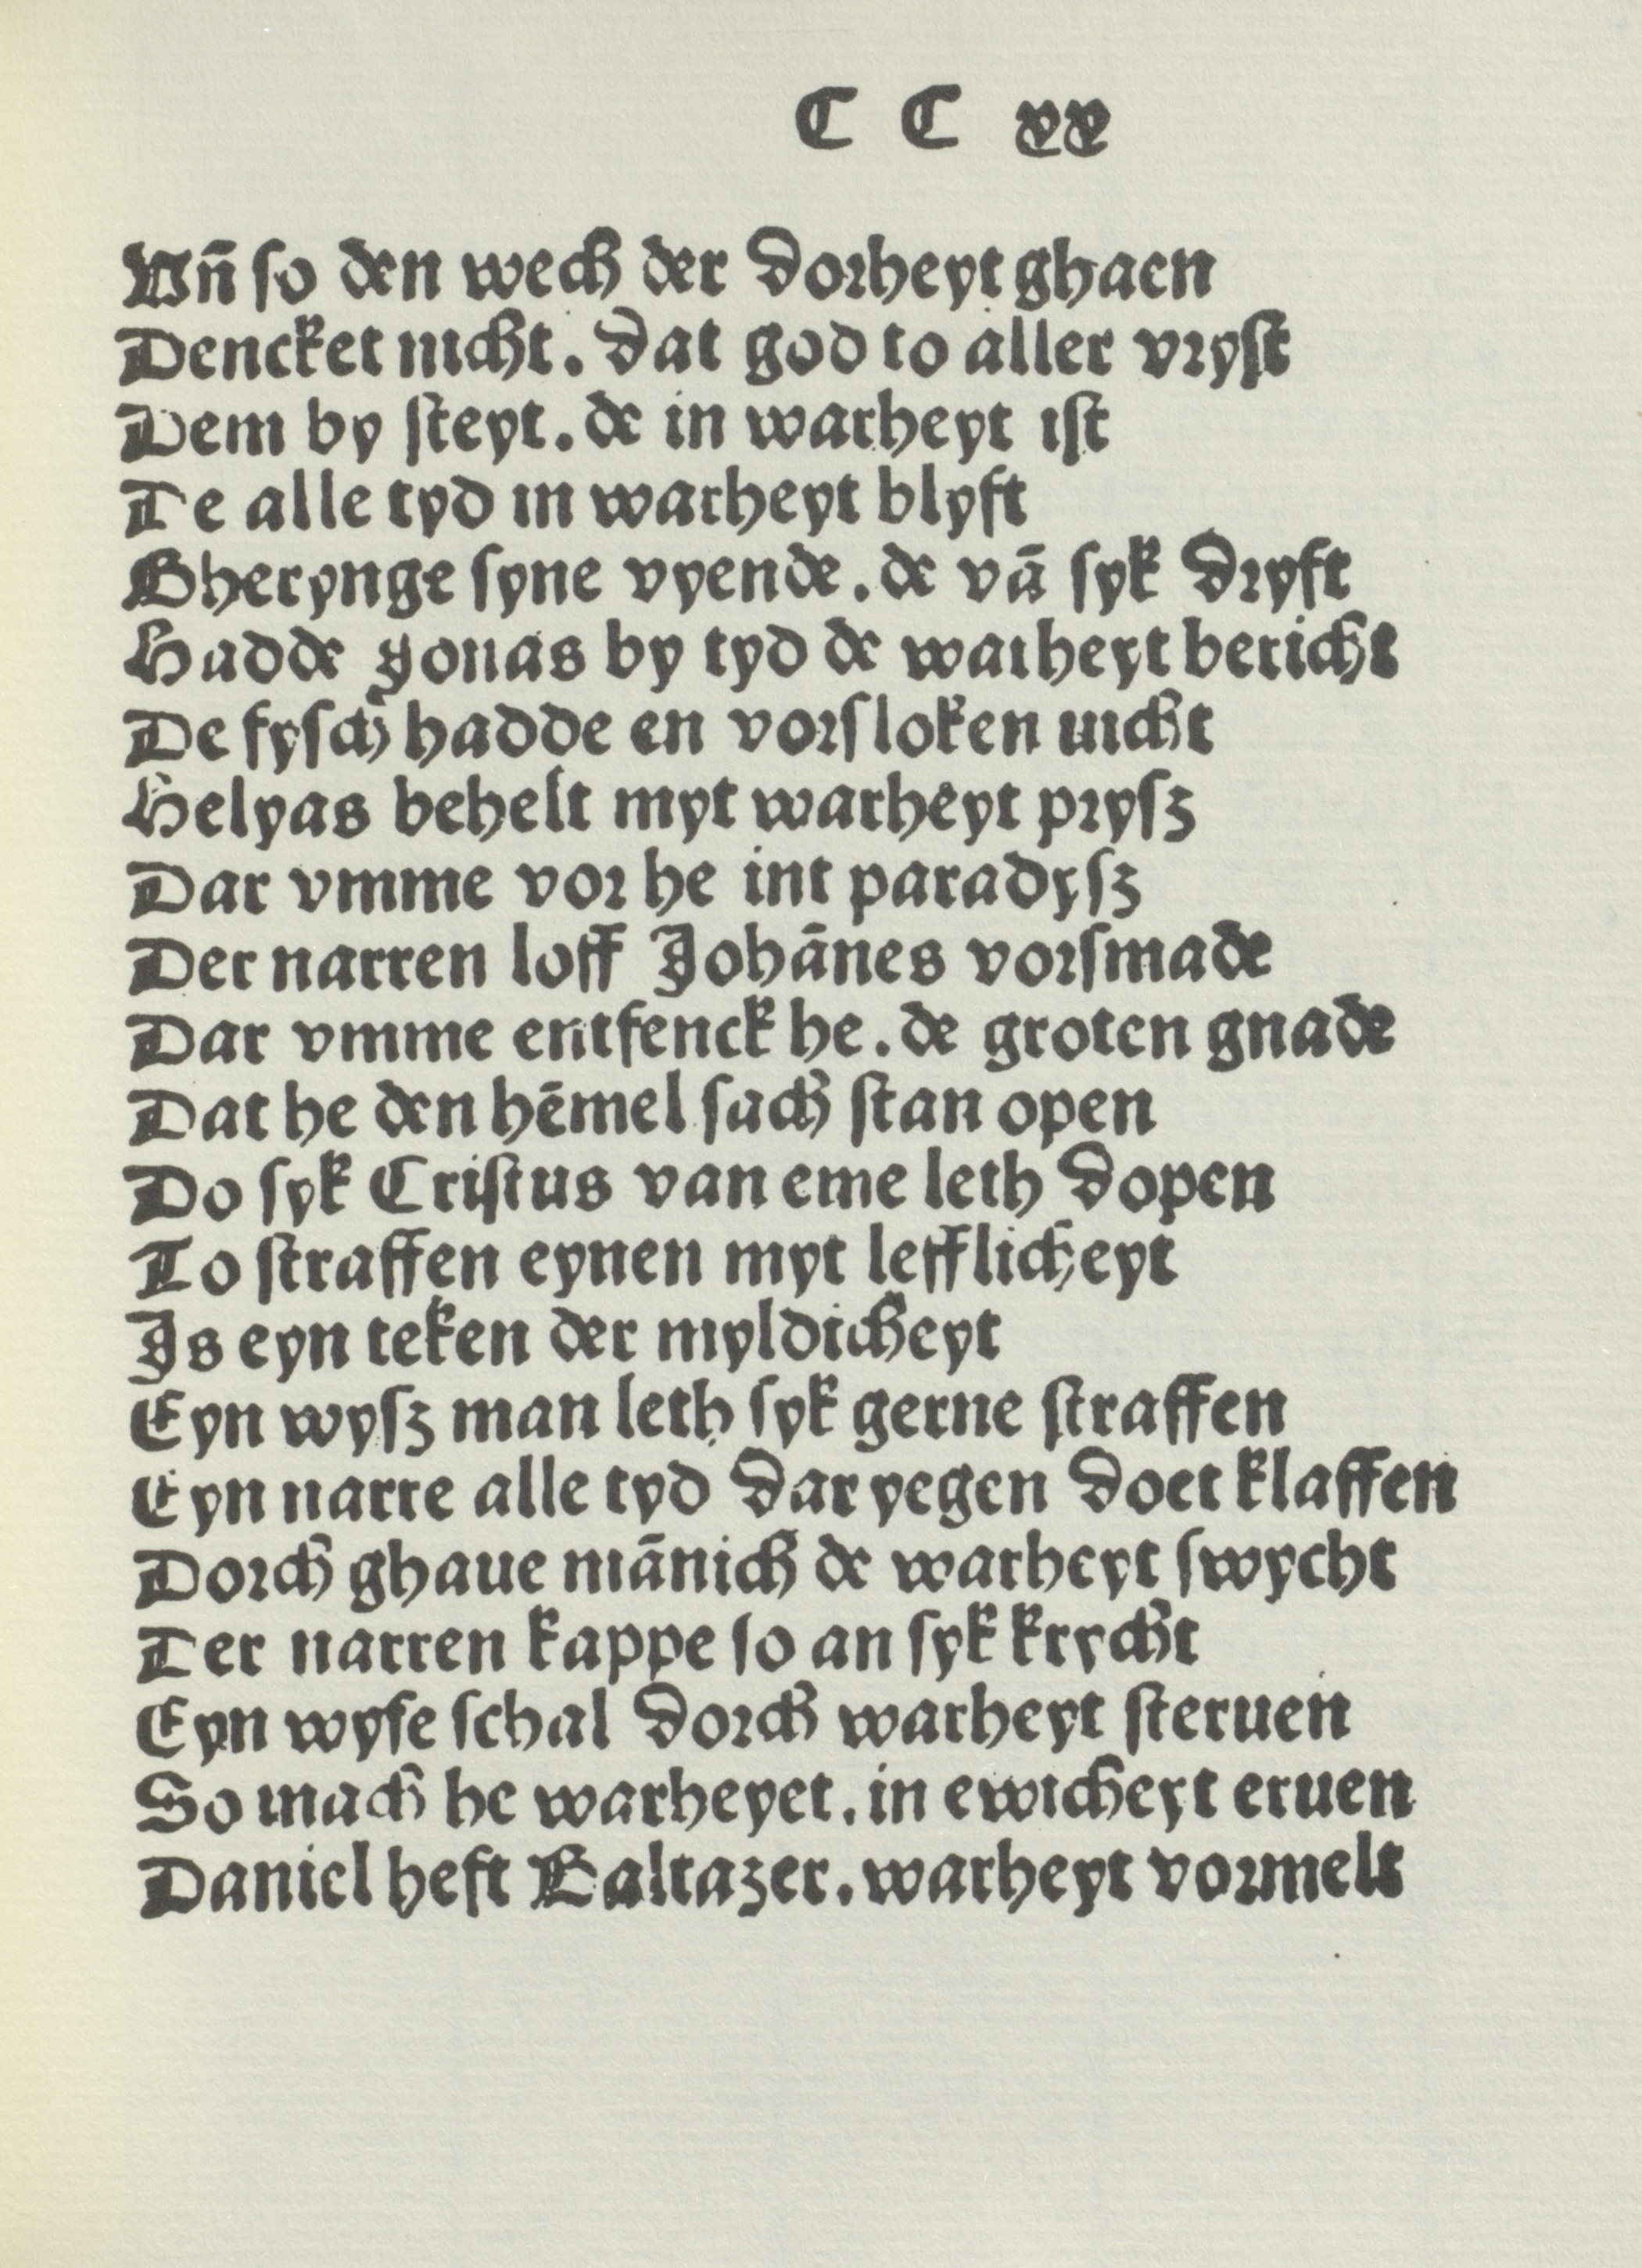 C C xx
Vñ so den wech der dorheyt ghaen
Dencket nicht. dat god to aller vryst
Dem by steyt. de in warheyt ist
De alle tyd in warheyt blyft
Gherynge syne vyende. de vā syk dryft
Hadde yonas by tyd de warheyt bericht
De fysch hadde en vorsloken nicht
Helyas behelt myt warheyt prysz
Dar vmme vor he int paradysz
Der narren loff Johānes vorsmade
Dar vmme entfenck he. de groten gnade
Dat he den hēmel sach stan open
Do syk Cristus van eme leth dopen
To straffen eynen myt lefflicheyt
Js eyn teken der myldicheyt
Eyn wysz man leth syk gerne straffen
Eyn narre alle tyd dar yegen doet klaffen
Dorch ghaue mānich de warheyt swycht
Der narren kappe so an syk krycht
Eyn wyse schal dorch warheyt steruen
So mach he warheyet. in ewicheyt eruen
Daniel heft Baltazer. warheyt vormelt